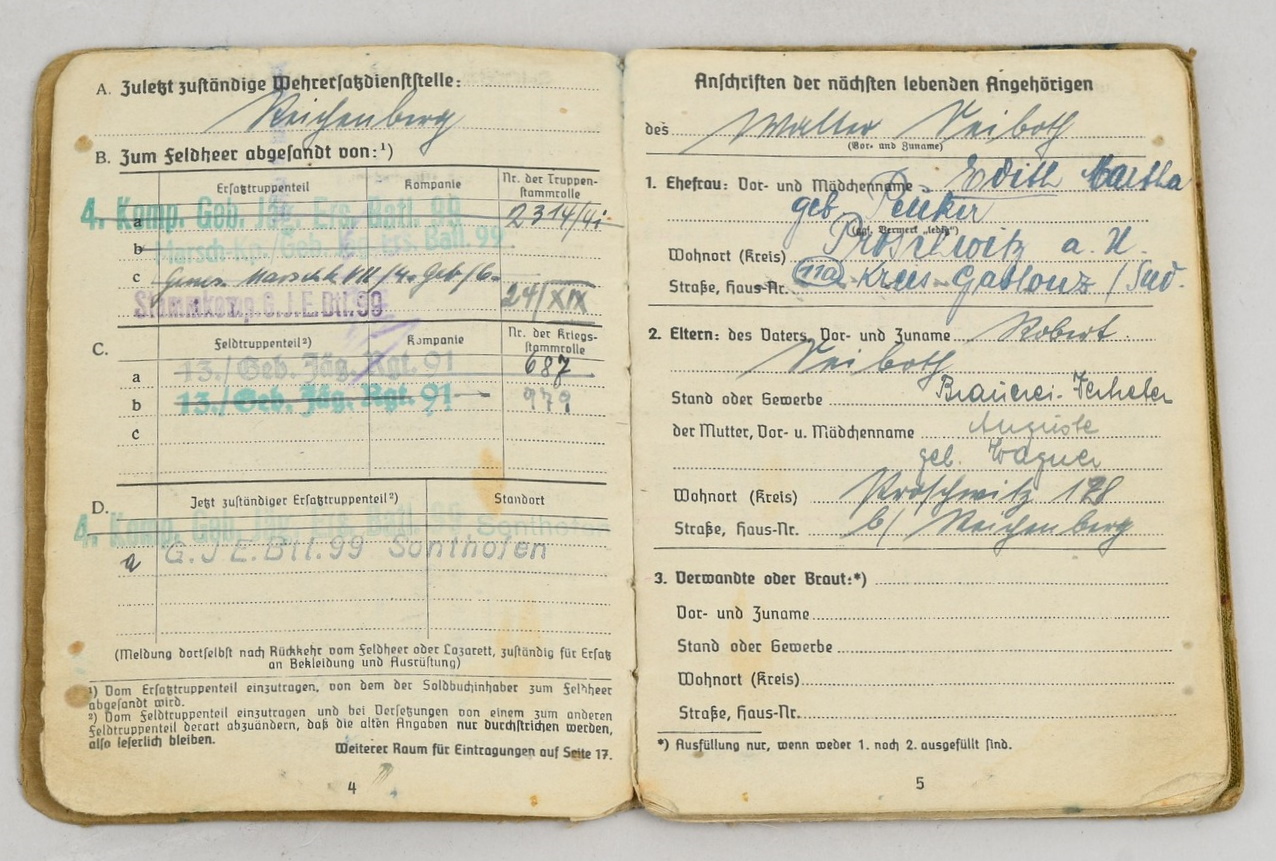 A. Zuletzt zuständige Wehrersatzdienststelle:
Reichenberg
B. Zum Feldheer abgesandt von:¹)
Ersatztruppenteil Kompanie Nr. der Truppen-
stammrolle
4. Komp. Geb. Jäg. Ers. Batl. 99
a 2314/41
b Marsch-Kp./Geb. Jäg. Ers. Batl. 99
c
Stammkomp. G.J.E.Btl. 99 24/XIX
C. Feldtruppenteil²) Kompanie Nr. der Kriegs-
stammrolle
a 13./Geb. Jäg. Rgt. 91 687
b 13./Geb. Jäg. Rgt. 91 979
c
D. Jetzt zuständiger Ersatztruppenteil²) Standort
4. Komp. Geb. Jäg. Ers. Batl. 99 Sonthofen
a G.J.E.Btl. 99 Sonthofen
(Meldung dortselbst nach Rückkehr vom Feldheer oder Lazarett, zuständig für Ersatz
an Bekleidung und Ausrüstung)
¹) Vom Ersatztruppenteil einzutragen, von dem der Soldbuchinhaber zum Feldheer
abgesandt wird.
²) Vom Feldtruppenteil einzutragen und bei Versetzungen von einem zum anderen
Feldtruppenteil derart abzuändern, daß die alten Angaben nur durchstrichen werden,
also leserlich bleiben.
Weiterer Raum für Eintragungen auf Seite 17.
4
Anschriften der nächsten lebenden Angehörigen
des Walter Veiboth
(Vor- und Zuname)
1. Ehefrau: Vor- und Mädchenname Edith Martha
geb. Peuker
(ggf. Vermerk „ledig“)
Wohnort (Kreis) Proschwitz a. N.
Straße, Haus-Nr. (11a) Kreis Gablonz / Sud.
2. Eltern: des Vaters, Vor- und Zuname Robert
Veiboth
Stand oder Gewerbe Brauerei-
der Mutter, Vor- u. Mädchenname Auguste
geb. Wagner
Wohnort (Kreis) Proschwitz 198
Straße, Haus-Nr. b/ Reichenberg
3. Verwandte oder Braut:*)
Vor- und Zuname
Stand oder Gewerbe
Wohnort (Kreis)
Straße, Haus-Nr.
*) Ausfüllung nur, wenn weder 1. noch 2. ausgefüllt sind.
5